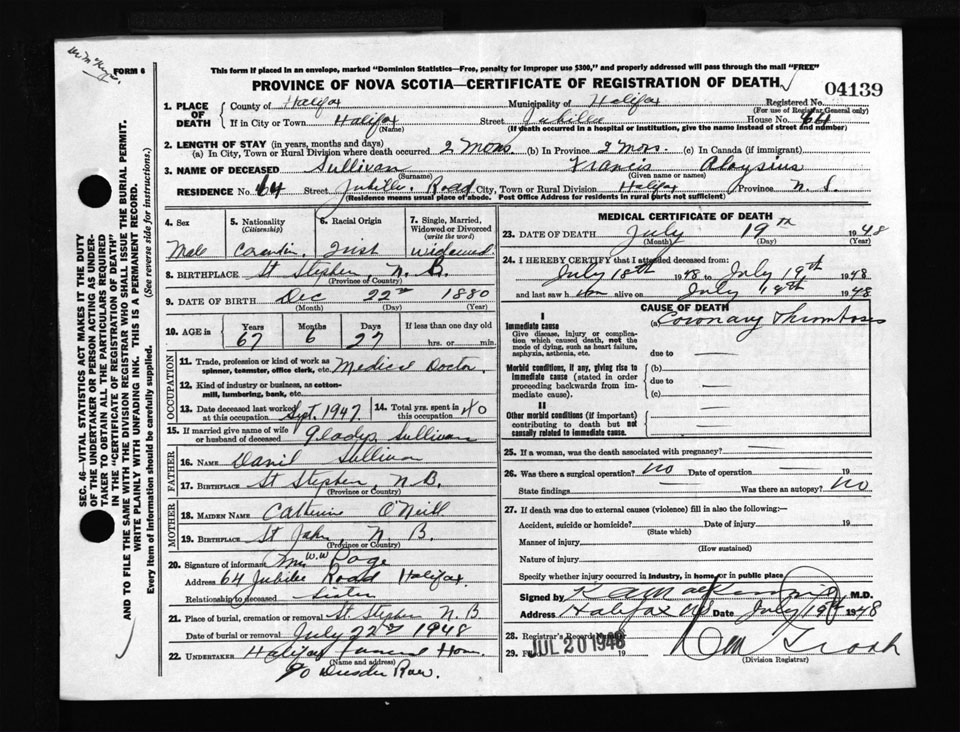 Wm McKeys.
FORM 6
This form if placed in an envelope, marked "Dominion Statistics—Free, penalty for improper use $300," and properly addressed will pass through the mail "FREE"
PROVINCE OF NOVA SCOTIA—CERTIFICATE OF REGISTRATION OF DEATH
04139
1. PLACE OF DEATH
County of Halifax Municipality of Halifax Registered No.
(For use of Registrar General only)
If in City or Town Halifax Street Jubilee House No. 64
(Name) (If death occurred in a hospital or institution, give the name instead of street and number)
2. LENGTH OF STAY (in years, months and days)
(a) In City, Town or Rural Division where death occurred 2 Mons. (b) In Province 2 Mons. (c) In Canada (if immigrant)
3. NAME OF DECEASED Sullivan Francis Aloysius
(Surname) (Given name or names)
RESIDENCE No. 64 Street Jubilee Road City, Town or Rural Division Halifax Province N. S.
(Residence means usual place of abode. Post Office Address for residents in rural parts not sufficient)
4. Sex
Male
5. Nationality
(Citizenship)
Canadian
6. Racial Origin
Irish
7. Single, Married, Widowed or Divorced
(write the word)
widowed
8. BIRTHPLACE St Stephen, N. B.
(Province of Country)
9. DATE OF BIRTH Dec 22nd 1880
(Month) (Day) (Year)
10. AGE in Years Months Days If less than one day old
67 6 27 hrs. or min.
OCCUPATION
11. Trade, profession or kind of work as spinner, teamster, office clerk, etc. Medical Doctor.
12. Kind of industry or business, as cotton-mill, lumbering, bank, etc.
13. Date deceased last worked at this occupation Sept. 1947
14. Total yrs. spent in this occupation 40
15. If married give name of wife or husband of deceased Gladys Sullivan
FATHER
16. NAME Daniel Sullivan
17. BIRTHPLACE St Stephen, N.B.
(Province or Country)
MOTHER
18. MAIDEN NAME Catherine O'Neill
19. BIRTHPLACE St John, N. B.
(Province or Country)
20. Signature of informant Mrs W.W Page
Address 64 Jubilee Road Halifax.
Relationship to deceased Sister
21. Place of burial, cremation or removal St Stephen N.B
Date of burial or removal July 22nd 1948
22. UNDERTAKER Halifax Funeral Home
(Name and address)
90 Dresden Row.
MEDICAL CERTIFICATE OF DEATH
23. DATE OF DEATH July 19th 1948
(Month) (Day) (Year)
24. I HEREBY CERTIFY that I attended deceased from:
July 18th 1948 to July 19th 1948
and last saw him alive on July 19th 1948
CAUSE OF DEATH
I
Immediate cause
Give disease, injury or complication which caused death, not the mode of dying, such as heart failure, asphyxia, asthenia, etc.
(a) Coronary Thrombosis
due to —
Morbid conditions, if any, giving rise to immediate cause (stated in order proceeding backwards from immediate cause).
(b) —
due to —
(c) —
II
Other morbid conditions (if important) contributing to death but not causally related to immediate cause.
25. If a woman, was the death associated with pregnancy? —
26. Was there a surgical operation? no Date of operation — 19
State findings — Was there an autopsy? no
27. If death was due to external causes (violence) fill in also the following:—
Accident, suicide or homicide? Date of injury 19
(State which)
Manner of injury
(How sustained)
Nature of injury
Specify whether injury occurred in industry, in home or in public place
Signed by M.D.
Address Halifax NS Date July 19th 1948
28. Registrar's Record Number
29. Filed JUL 20 1948 19
(Division Registrar)
SEC. 46—VITAL STATISTICS ACT MAKES IT THE DUTY
OF THE UNDERTAKER OR PERSON ACTING AS UNDER-
TAKER TO OBTAIN ALL THE PARTICULARS REQUIRED
IN THE "CERTIFICATE OF REGISTRATION OF DEATH"
AND TO FILE THE SAME WITH THE DIVISION REGISTRAR WHO SHALL ISSUE THE BURIAL PERMIT.
WRITE PLAINLY WITH UNFADING INK. THIS IS A PERMANENT RECORD.
Every item of information should be carefully supplied. (See reverse side for instructions.)